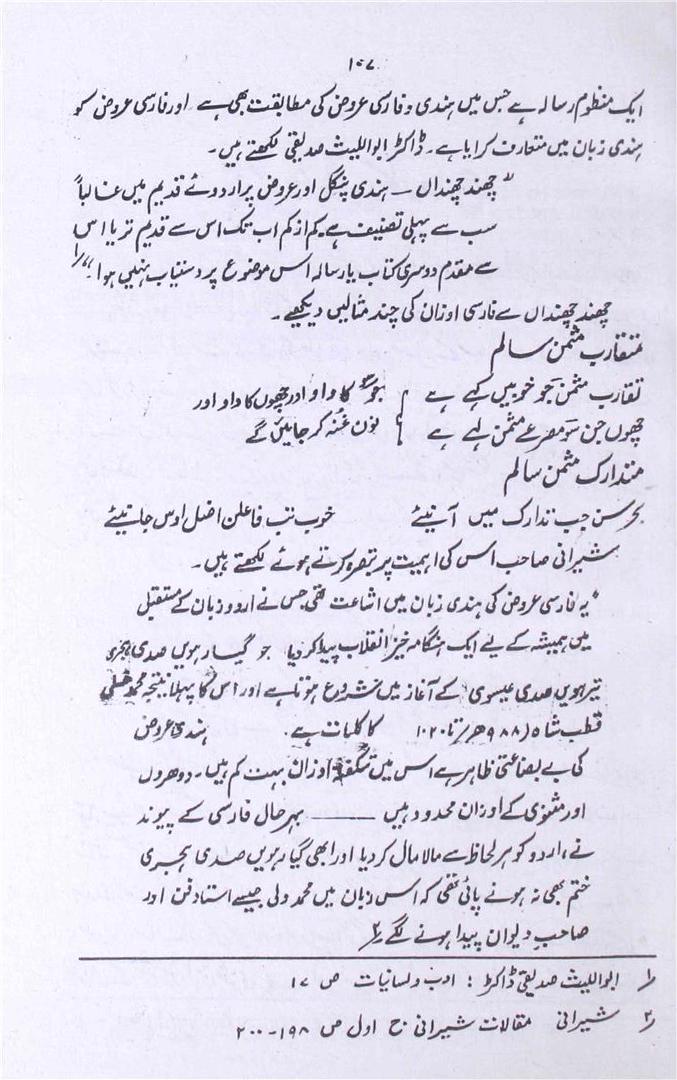 ۱۰۷
ایک منظوم رسالہ ہے جس میں ہندی و فارسی عروض کی مطابقت بھی ہے اور فارسی عروض کو
ہندی زبان میں متعارف کرایا ہے۔ ڈاکٹر ابواللیث صدیقی لکھتے ہیں۔
"چھند چھنداں — ہندی پنگل اور عروض پر اردوئے قدیم میں غالباً
سب سے پہلی تصنیف ہے کم از کم اب تک اس سے قدیم تر یا اس
سے مقدم دوسری کتاب یا رسالہ اس موضوع پر دستیاب نہیں ہوا۔" ۱؎
چھند چھنداں سے فارسی اوزان کی چند مثالیں دیکھیے۔
متقارب مثمن سالم
تقارب مثمن بحو خوبیں کہے ہے } بحو کا واو اور چھوں کا واو اور
چھوں جن سو مصرعے مثمن لہے ہے } نون غنہ گر جائیں گے
متدارک مثمن سالم
بحر سن جب تدارک میں آنیئے خوب تب فاعلن اصل اوس جانیئے
شیرانی صاحب اس کی اہمیت پر تبصرہ کرتے ہوئے لکھتے ہیں۔
"یہ فارسی عروض کی ہندی زبان میں اشاعت تھی جس نے اردو زبان کے مستقبل
میں ہمیشہ کے لیے ایک ہنگامہ خیز انقلاب پیدا کر دیا جو گیارہویں صدی ہجری
تیرہویں صدی عیسوی کے آغاز میں شروع ہوتا ہے اور اس کا پہلا نتیجہ محمد قلی
قطب شاہ (۹۸۸ھ تا ۱۰۲۰ کا کلیات ہے۔ ہندی عروض
کی بے بضاعتی ظاہر ہے اس میں شگفتہ اوزان بہت کم ہیں۔ دوھروں
اور مثنوی کے اوزان محدود ہیں ——— بہرحال فارسی کے پیوند
نے، اردو کو ہر لحاظ سے مالا مال کر دیا اور ابھی گیارہویں صدی ہجری
ختم بھی نہ ہونے پائی تھی کہ اس زبان میں محمد ولی جیسے استاد فن اور
صاحبِ دیوان پیدا ہونے لگے ۲؎
۱؎ ابواللیث صدیقی ڈاکٹر: ادب و لسانیات ص ۱۷
۲؎ شیرانی مقالات شیرانی ج اول ص ۱۹۸-۲۰۰